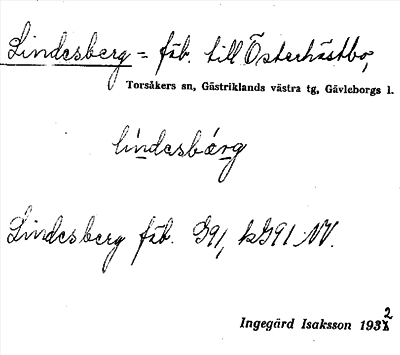 Lindesberg = fäb. till Österhästbo,
Torsåkers sn, Gästriklands västra tg, Gävleborgs l.
lìndesbárg
Lindesberg fäb. G91, kG91 NV.
Ingegärd Isaksson 1932